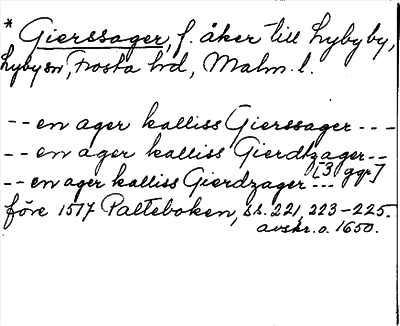 * Gierssager, f. åker till Hybyby,
Hyby sn, Frosta hd, Malm. l.
-- en ager kalliss Gierssager ---
-- en ager kalliss Gierdtzager --
[3 ggr]
-- en ager kalliss Gierdzager ---
före 1517 Palteboken, ss. 221, 223-225.
avskr. o. 1650.